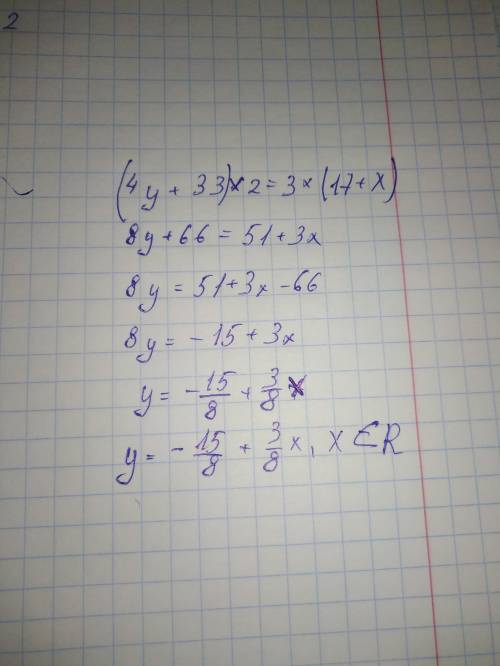 2
(4y + 33) × 2 = 3 × (17 + x)
8y + 66 = 51 + 3x
8y = 51 + 3x - 66
8y = - 15 + 3x
y = - 15/8 + 3/8 x
y = - 15/8 + 3/8 x, x ∈ R